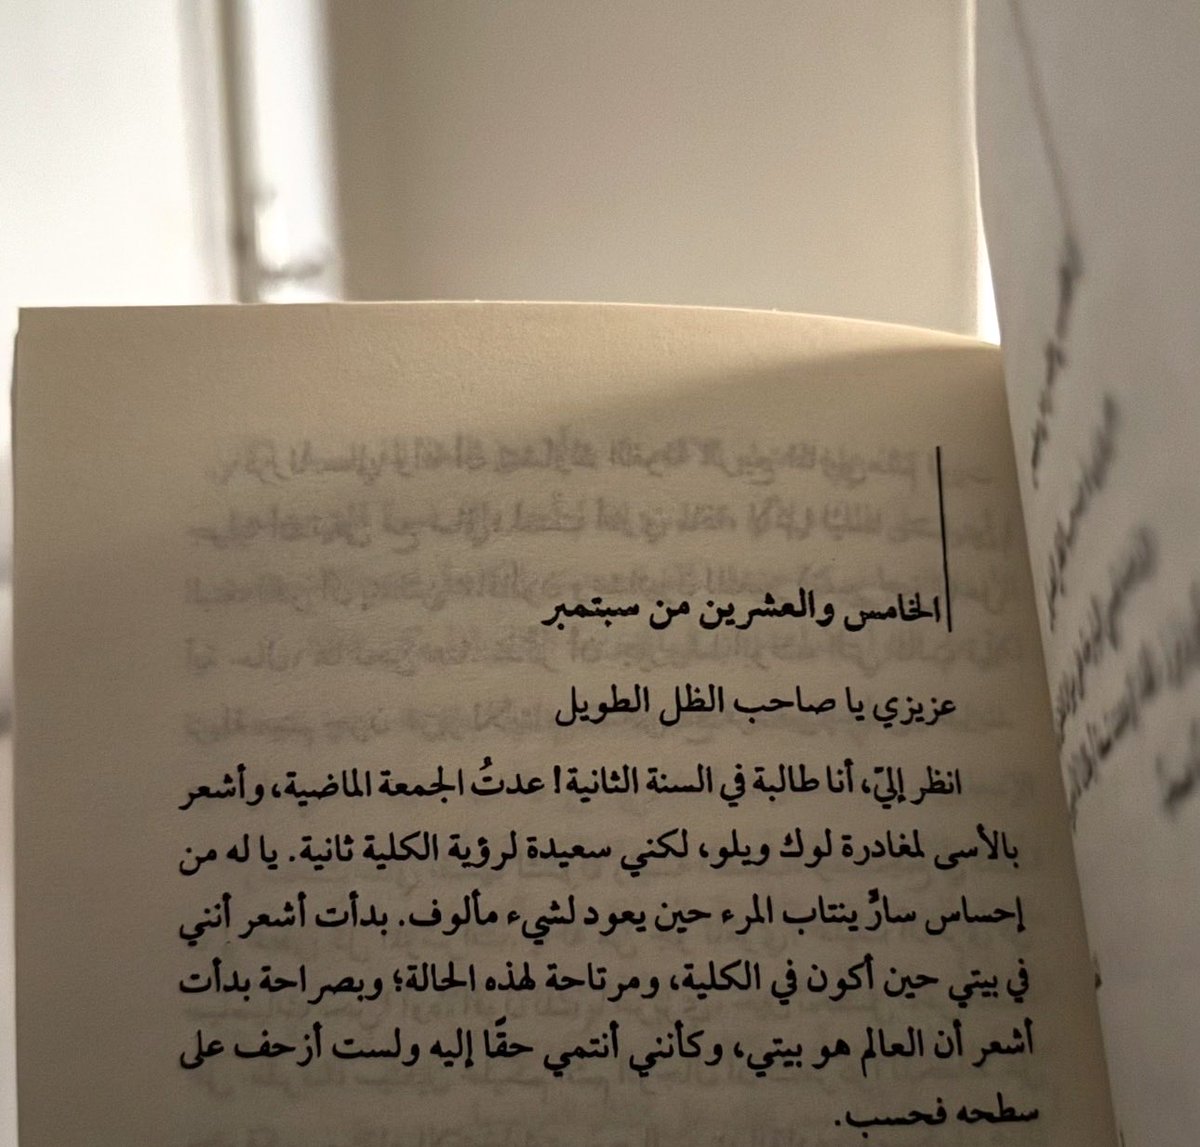 الخامس والعشرين من سبتمبر
عزيزي يا صاحب الظل الطويل
انظر إليّ، أنا طالبة في السنة الثانية! عدتُ الجمعة الماضية، وأشعر
بالأسى لمغادرة لوك ويلو، لكني سعيدة لرؤية الكلية ثانية. يا له من
إحساس سارٌّ ينتاب المرء حين يعود لشيء مألوف. بدأت أشعر أنني
في بيتي حين أكون في الكلية، ومرتاحة لهذه الحالة؛ وبصراحة بدأت
أشعر أن العالم هو بيتي، وكأنني أنتمي حقًا إليه ولست أزحف على
سطحه فحسب.